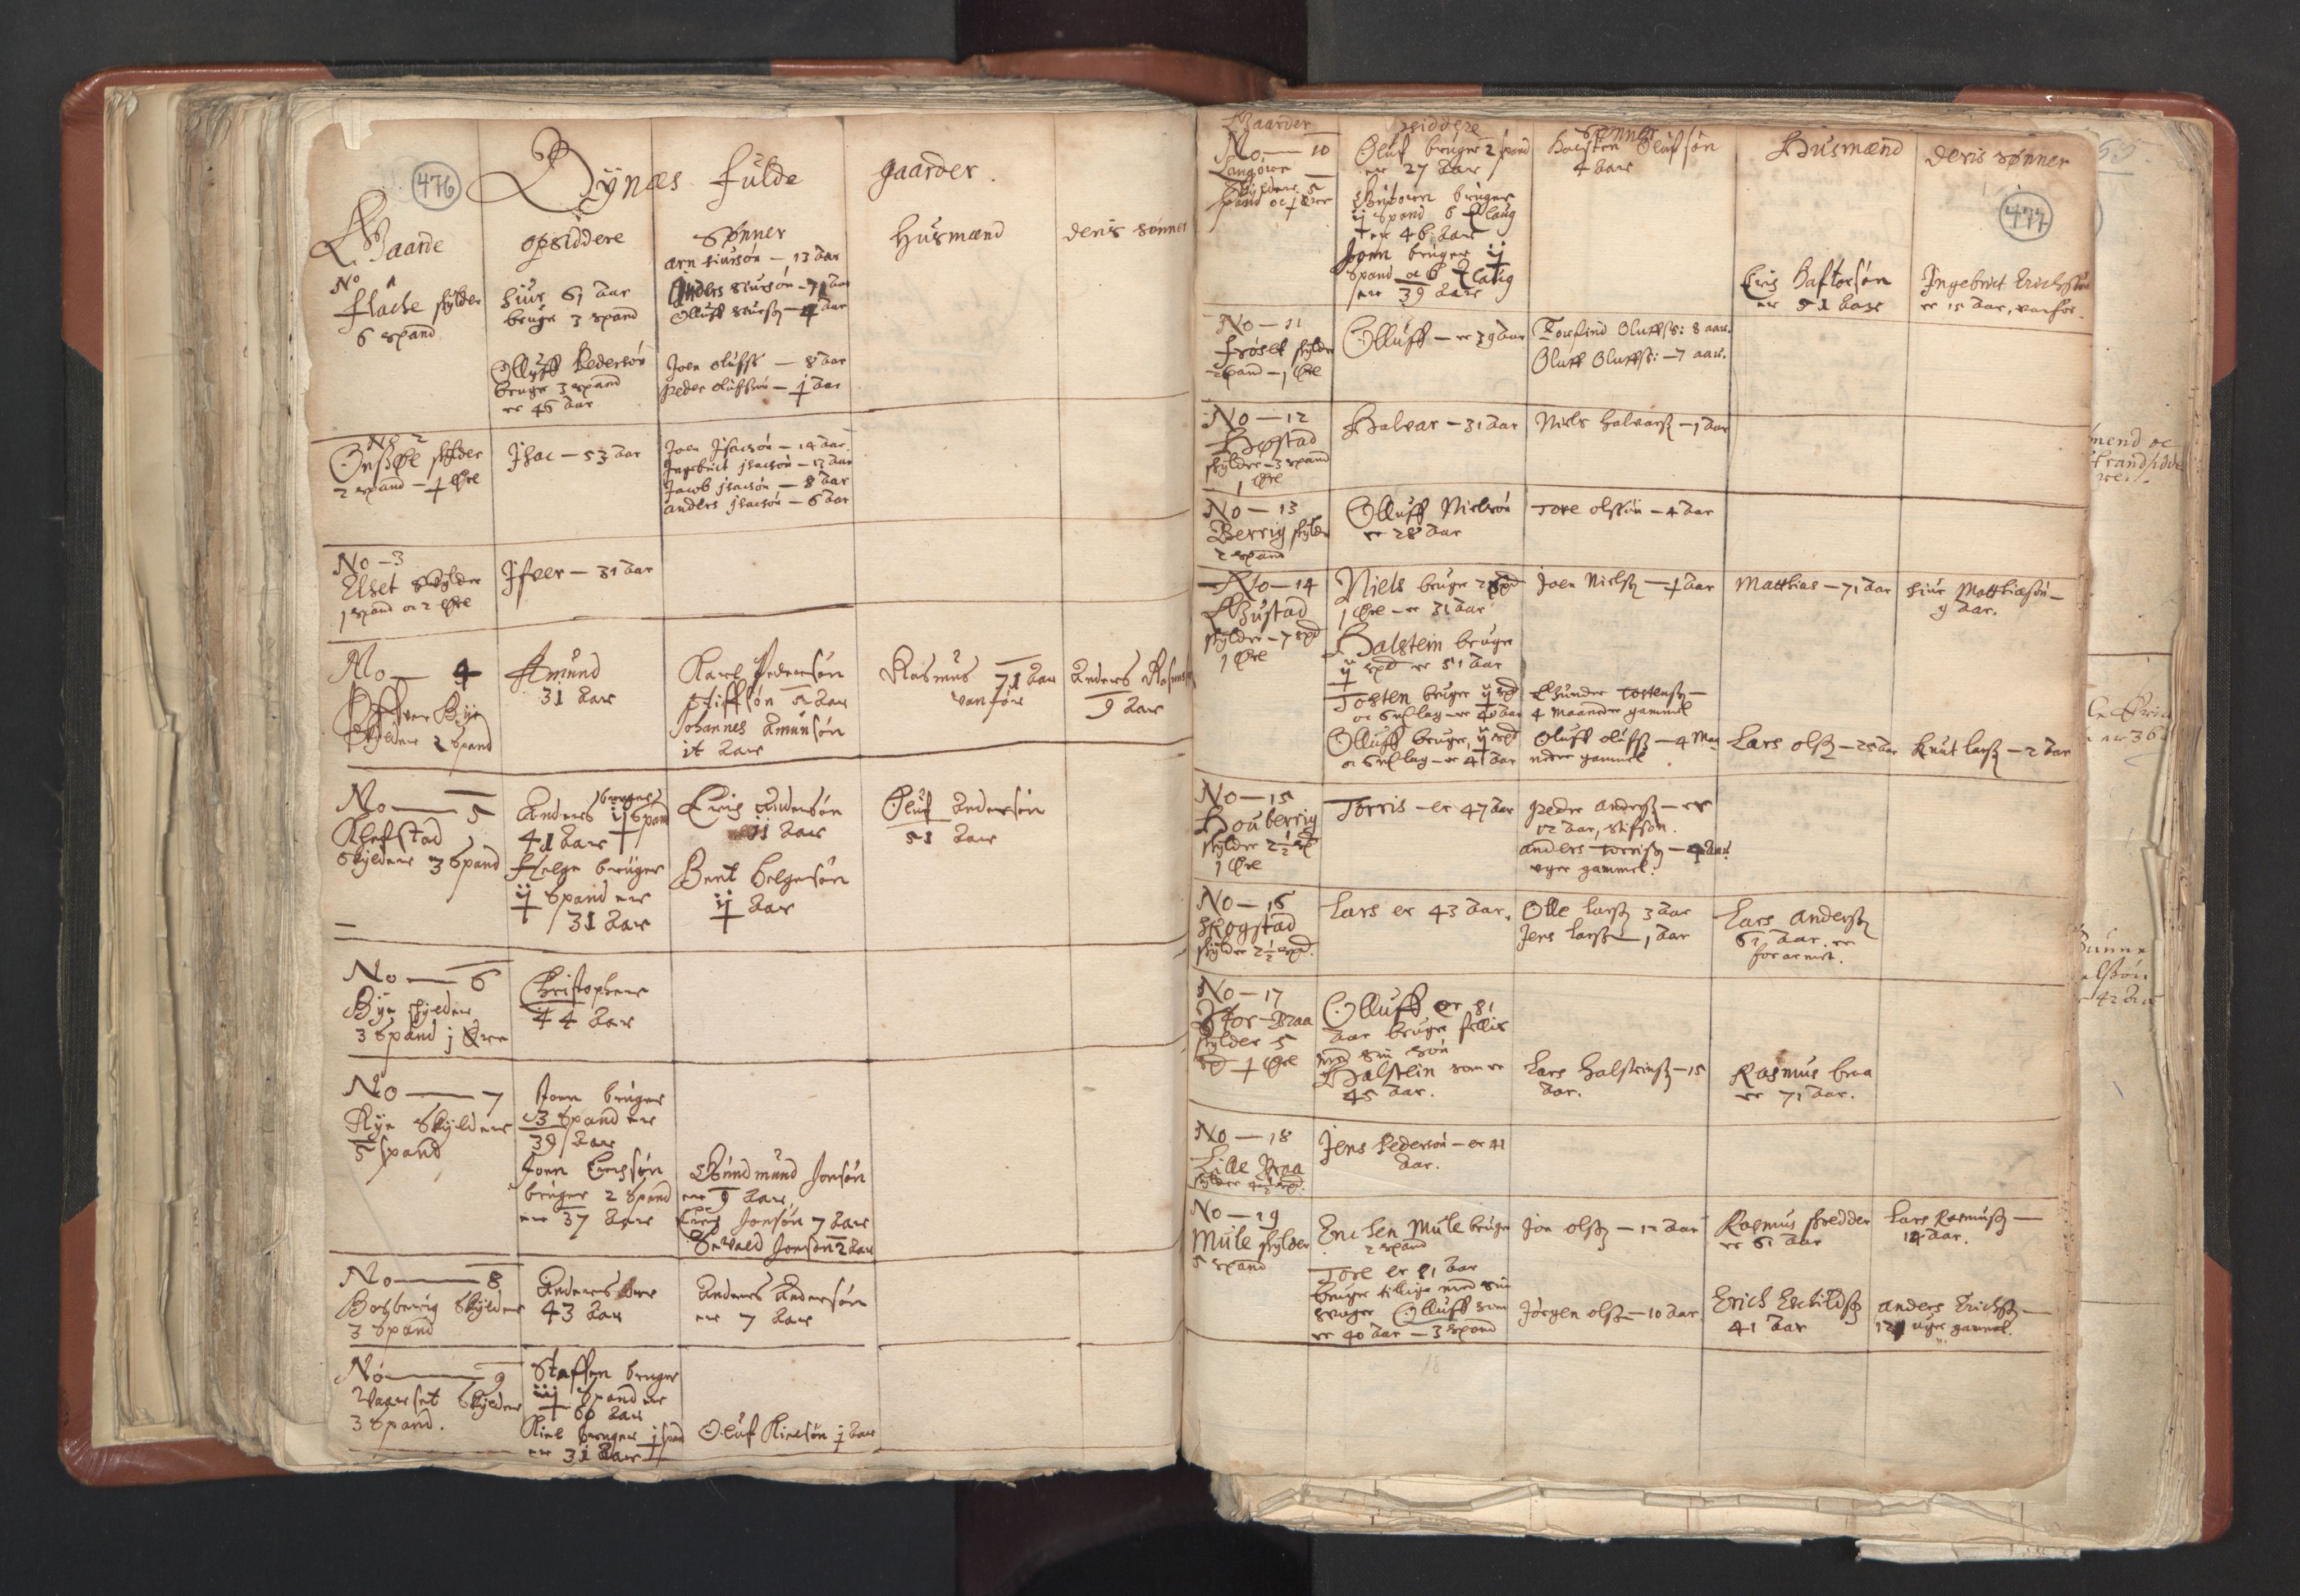 476
Bÿnæs fulde gaarder.
Gaarde opsiddere Sønner Husmænd deris sønner
No 1
flache skylder
6 spand
Siur 61 aar
bruger 3 spand
arn siursøn — 13 aar
Anders siursøn — 7 aar
Olluff siurß — 4 aar
Olluff Pedersøn
bruger 3 spand
er 46 aar
Joen olufß — 8 aar
Peder olufssøn — 1 aar
No 2
skylder
2 spand — 1 Øre
Jsac — 53 aar
Joen Jsacsøn — 14 aar
Ingebrict jsacsøn — 12 aar
Jacob jsacsøn — 8 aar
anders jsacsøn — 6 aar
No — 3
Elset skylder
1 spand oc 2 Øre
Jfver — 31 aar
No — 4
Bÿe
skylder 2 Spand
Amund
31 aar
Karl Pedersøn
stiffsøn
Johannes Amunsøn
aar
Rasmus 71 aar
vanfør
Anders
9 aar
No — 5
Klefstad
skylder 3 Spand
Anders bruger ij Spand
41 aar
Helge bruger
ij Spand er
31 aar
Erich Andersøn
11 aar
Bent Helgesøn
ij aar
Oluf Andersøn
51 aar
No — 6
Bÿe skylder
3 Spand j Øre
Christopher
44 aar
No — 7
Rÿe Skylder
5 spand
Joen bruger
3 Spand er
39 aar
Joen Erichsøn
bruger 2 Spand
er 37 aar
Gundmund Jonsøn
er 9 aar
Erich Jonsøn 7 aar
Sivald Jonsøn 2 aar
No — 8
Bosberrig Skylder
3 Spand
Anders
43 aar
Anders Andersøn
er 7 aar
No — 9
Vaarset Skylder
3 Spand.
Staffen bruger
iij Spand er
60 aar
Kiel bruger j span
er 31 aar
Oluf Kielsøn j aar
Gaarder opsiddere Sønner Husmænd deris sønner
477
No — 10
Langøren
skylder 5
spand oc j Øre
Oluf bruger 2 spand
er 27 aar
Halsten Olufsøn
4 aar
bruger
ij Spand 6 laug
er 46 aar
Joen bruger ij
Spand oc 6 laug
er 39 aar
Erich Haftorsøn
er 51 aar
Ingebrict Erichssøn
er 15 aar, vanfør.
No — 11
frøset skylder
2 spand — 1 Øre
Olluff — er 39 aar
Torfind Oluffß: 8 aar.
Oluff Oluffß: — 7 aar.
No — 12
Høstad
skylder — 3 spand
1 Øre
Halvar — 31 aar
Niels halvarß — 1 aar
No — 13
Berrig skylder
2 spand
Olluff Nielsøn
er 28 aar
Tore olssøn — 4 aar
No — 14
Gustad
skylder — 7 spd
1 Øre
Niels bruger 2 spd
1 Øre — er 31 aar
Joen Nielsß — 1 aar
Matthias — 71 aar
siur Matthiæsøn —
9 aar.
Halstein bruger
ij spd er 51 aar
Tosten bruger ij spd
oc 6 lag — er 40 aar
Gunder Tostensß —
4 maaneder gammel
Olluff bruger, ij spd
oc 6 lag — er 41 aar
Oluff olufß — 4 maa
neder gammel
Lars olß — 25 aar
Knut larß — 2 aar
No — 15
Houberrig
skylder 2½ sp
1 Øre
Torris — er 47 aar
Peder andersß — er
12 aar, stifsøn.
anders Torrisß — 4
uger gammel.
No — 16
Skogstad
skylder 2½ spd.
Lars er 43 aar.
Olle larß 3 aar
Jens larß — 1 aar
Lars andersß
61 aar. er
forarmet.
No — 17
Stor-Braa
skylder 5
sp 1 Øre
Olluff, er 81
aar bruger fellis
med sin søn
Halstein som er
45 aar.
Lars halsteinß — 15
aar.
Rasmus braa
er 71 aar.
No — 18
Lille Braa
skylder 4½ spd.
Jens Pedersøn — er 41
aar.
No — 19
Mule skylder
5 spand
Enchen Mule bruger
2 spand
Jon olß — 12 aar
Rasmus skredder
er 61 aar
Lars Rasmusß —
14 aar.
Tore er 81 aar
bruger tillige med sin
svager Olluff som
er 40 aar — 3 spand
Jørgen olß — 10 aar.
Erich Eschildß
41 aar
anders Erichsß —
12 uger gammel.
18